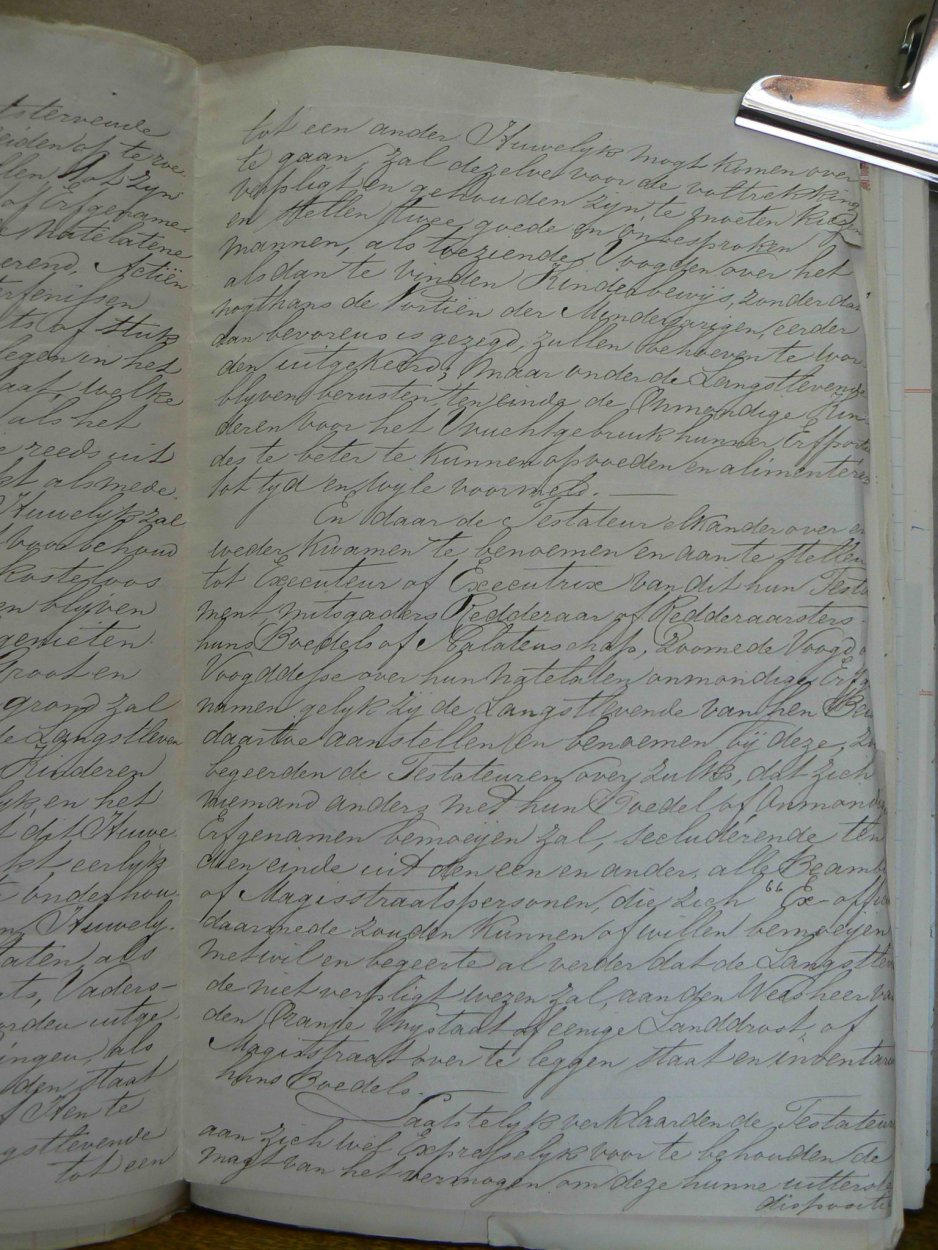 tstervende
eiden of te ree
llen tot zyn
of Erfgename
Natelatene
erend, Actiën
erfenissen
ts of stuk
legen in het
aat, welke
als het
e reeds uit
kt alsmede
Huwelyk zal
voor behoud
Kosteloos
en blyven
genieten
Groot en
grond zal
de Langstleven
Kinderen
lyk en het
t dit Huwe
kt eerlyk
onderhou
n, Huwely
laten, als
ts, Vaders-
orden uitge
ingen, als
den staat
Hen te
gstlevende
tot een
tot een ander Huwelyk mogt komen over
te gaan, zal dezelve voor de voltrekking
verpligt en gehouden zyn, te moeten kiezen
en stellen twee goede en onbesproken
mannen, als toeziende Voogden over het
als dan te vinden Kinderbewijs, zonder dat
nogthans de Portiën der Minderjarigen, eerder
dan bevorens is gezegd, zullen behoeven te wor
den uitgekeerd; maar onder de Langstlevende
blyven berusten, ten einde de Onmondige Kin
deren voor het Vruchtgebruik hunner Erfportie
des te beter te kunnen opvoeden en alimenteren
tot tyd en wyle voormeld.
En daar de Testateur elkander over en
weder kwamen te benoemen en aan te stellen
tot Executeur of Executrix van dit hun Testa
ment, mitsgaders Redderaar of Redderaarster
huns Boedels of Nalatenschap, zoomede Voogd of
Voogddesse over hun natelaten onmondige Erfge
namen gelyk zy de Langstlevende van hen Beide
daartoe aanstellen en benoemen by deze, zo
begeerden de Testateuren over zulks, dat zich
niemand anders met hun Boedel of Onmondige
Erfgenamen bemoeijen zal, secluderende ten
dien einde uit den een en ander, alle Beamb
of Magisstraatspersonen, die zich "Ex-officio
daarmede zouden kunnen of willen bemoeijen
met wil en begeerte al verder dat de Langstleven
de niet verpligt wezen zal, aan den Weesheer van
den Oranje Vrystaat of eenige Landdrost, of
Magistraat over te leggen staat en inventaris
huns Boedels.
Laatstelyk verklaarden de Testateur
aan zich wel Expresselyk voor te behouden de
magt van het vermogen om deze hunne uitterste
dispositie